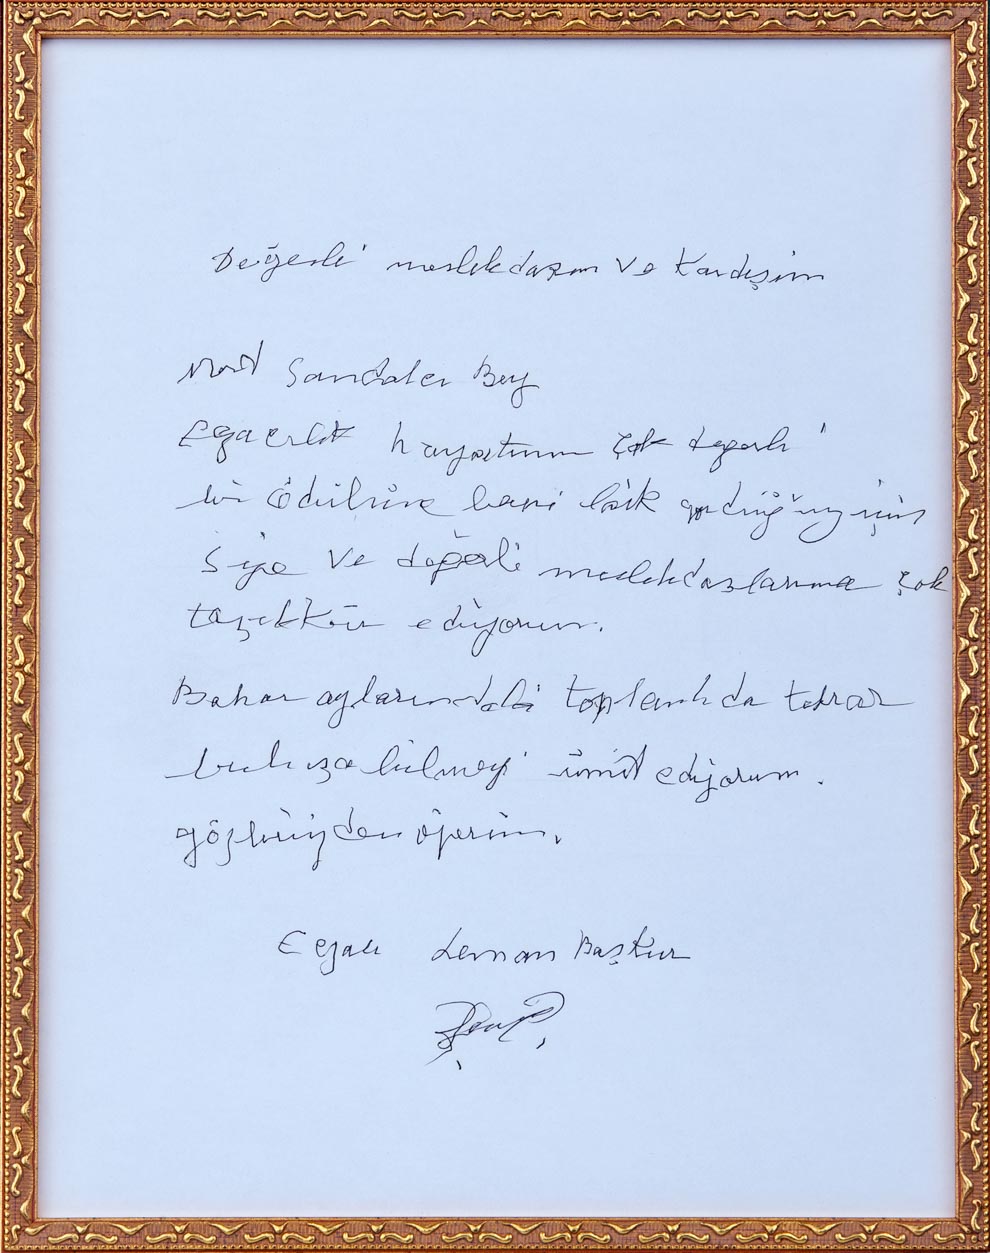 Değerli meslekdaşım ve Kardeşim
Sandalcı Bey
Eczacılık hayatımın çok değerli
bir ödülüne beni lâik gördüğünüz için
Size ve değerli meslekdaşlarıma çok
teşekkür ediyorum.
Bahar aylarındaki toplantıda tekrar
buluşabilmeyi ümit ediyorum.
gözlerinizden öperim.
Eczacı Leman Başkur